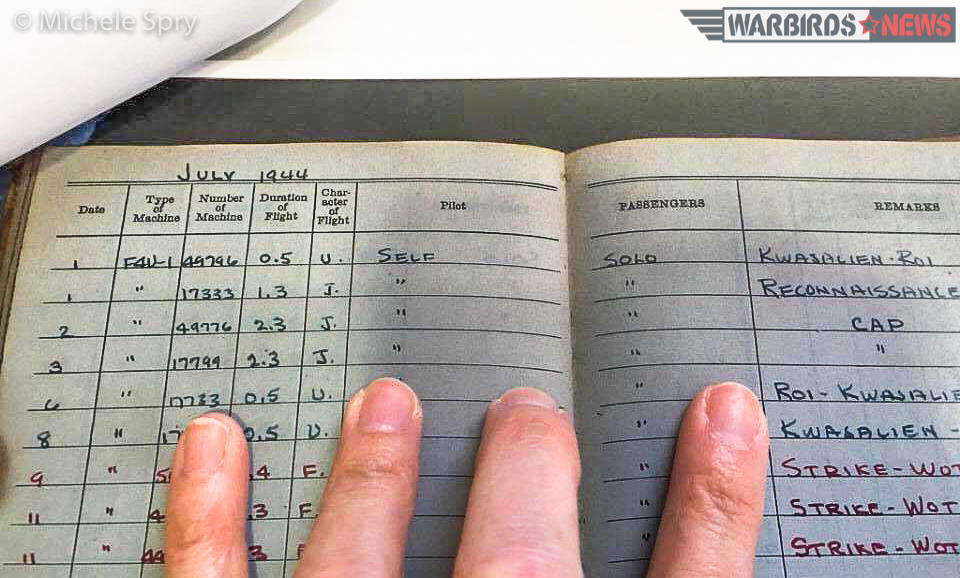 © Michele Spry
WARBIRDS NEWS
JULY 1944
Date Type of Machine Number of Machine Duration of Flight Char- acter of Flight Pilot PASSENGERS REMARKS
1 F4U-1 49796 0.5 U. SELF SOLO KWASALIEN-ROI
1 " 17333 1.3 J. " " RECONNAISSANCE
2 " 49776 2.3 J. " " CAP
3 " 17799 2.3 J. " " "
6 " 17733 0.5 U. " ROI-KWASALIE
8 " 0.5 U. " KWASALIEN-
9 " F. " STRIKE-WOT
11 " F. " STRIKE-WOT
11 " " STRIKE-WOT